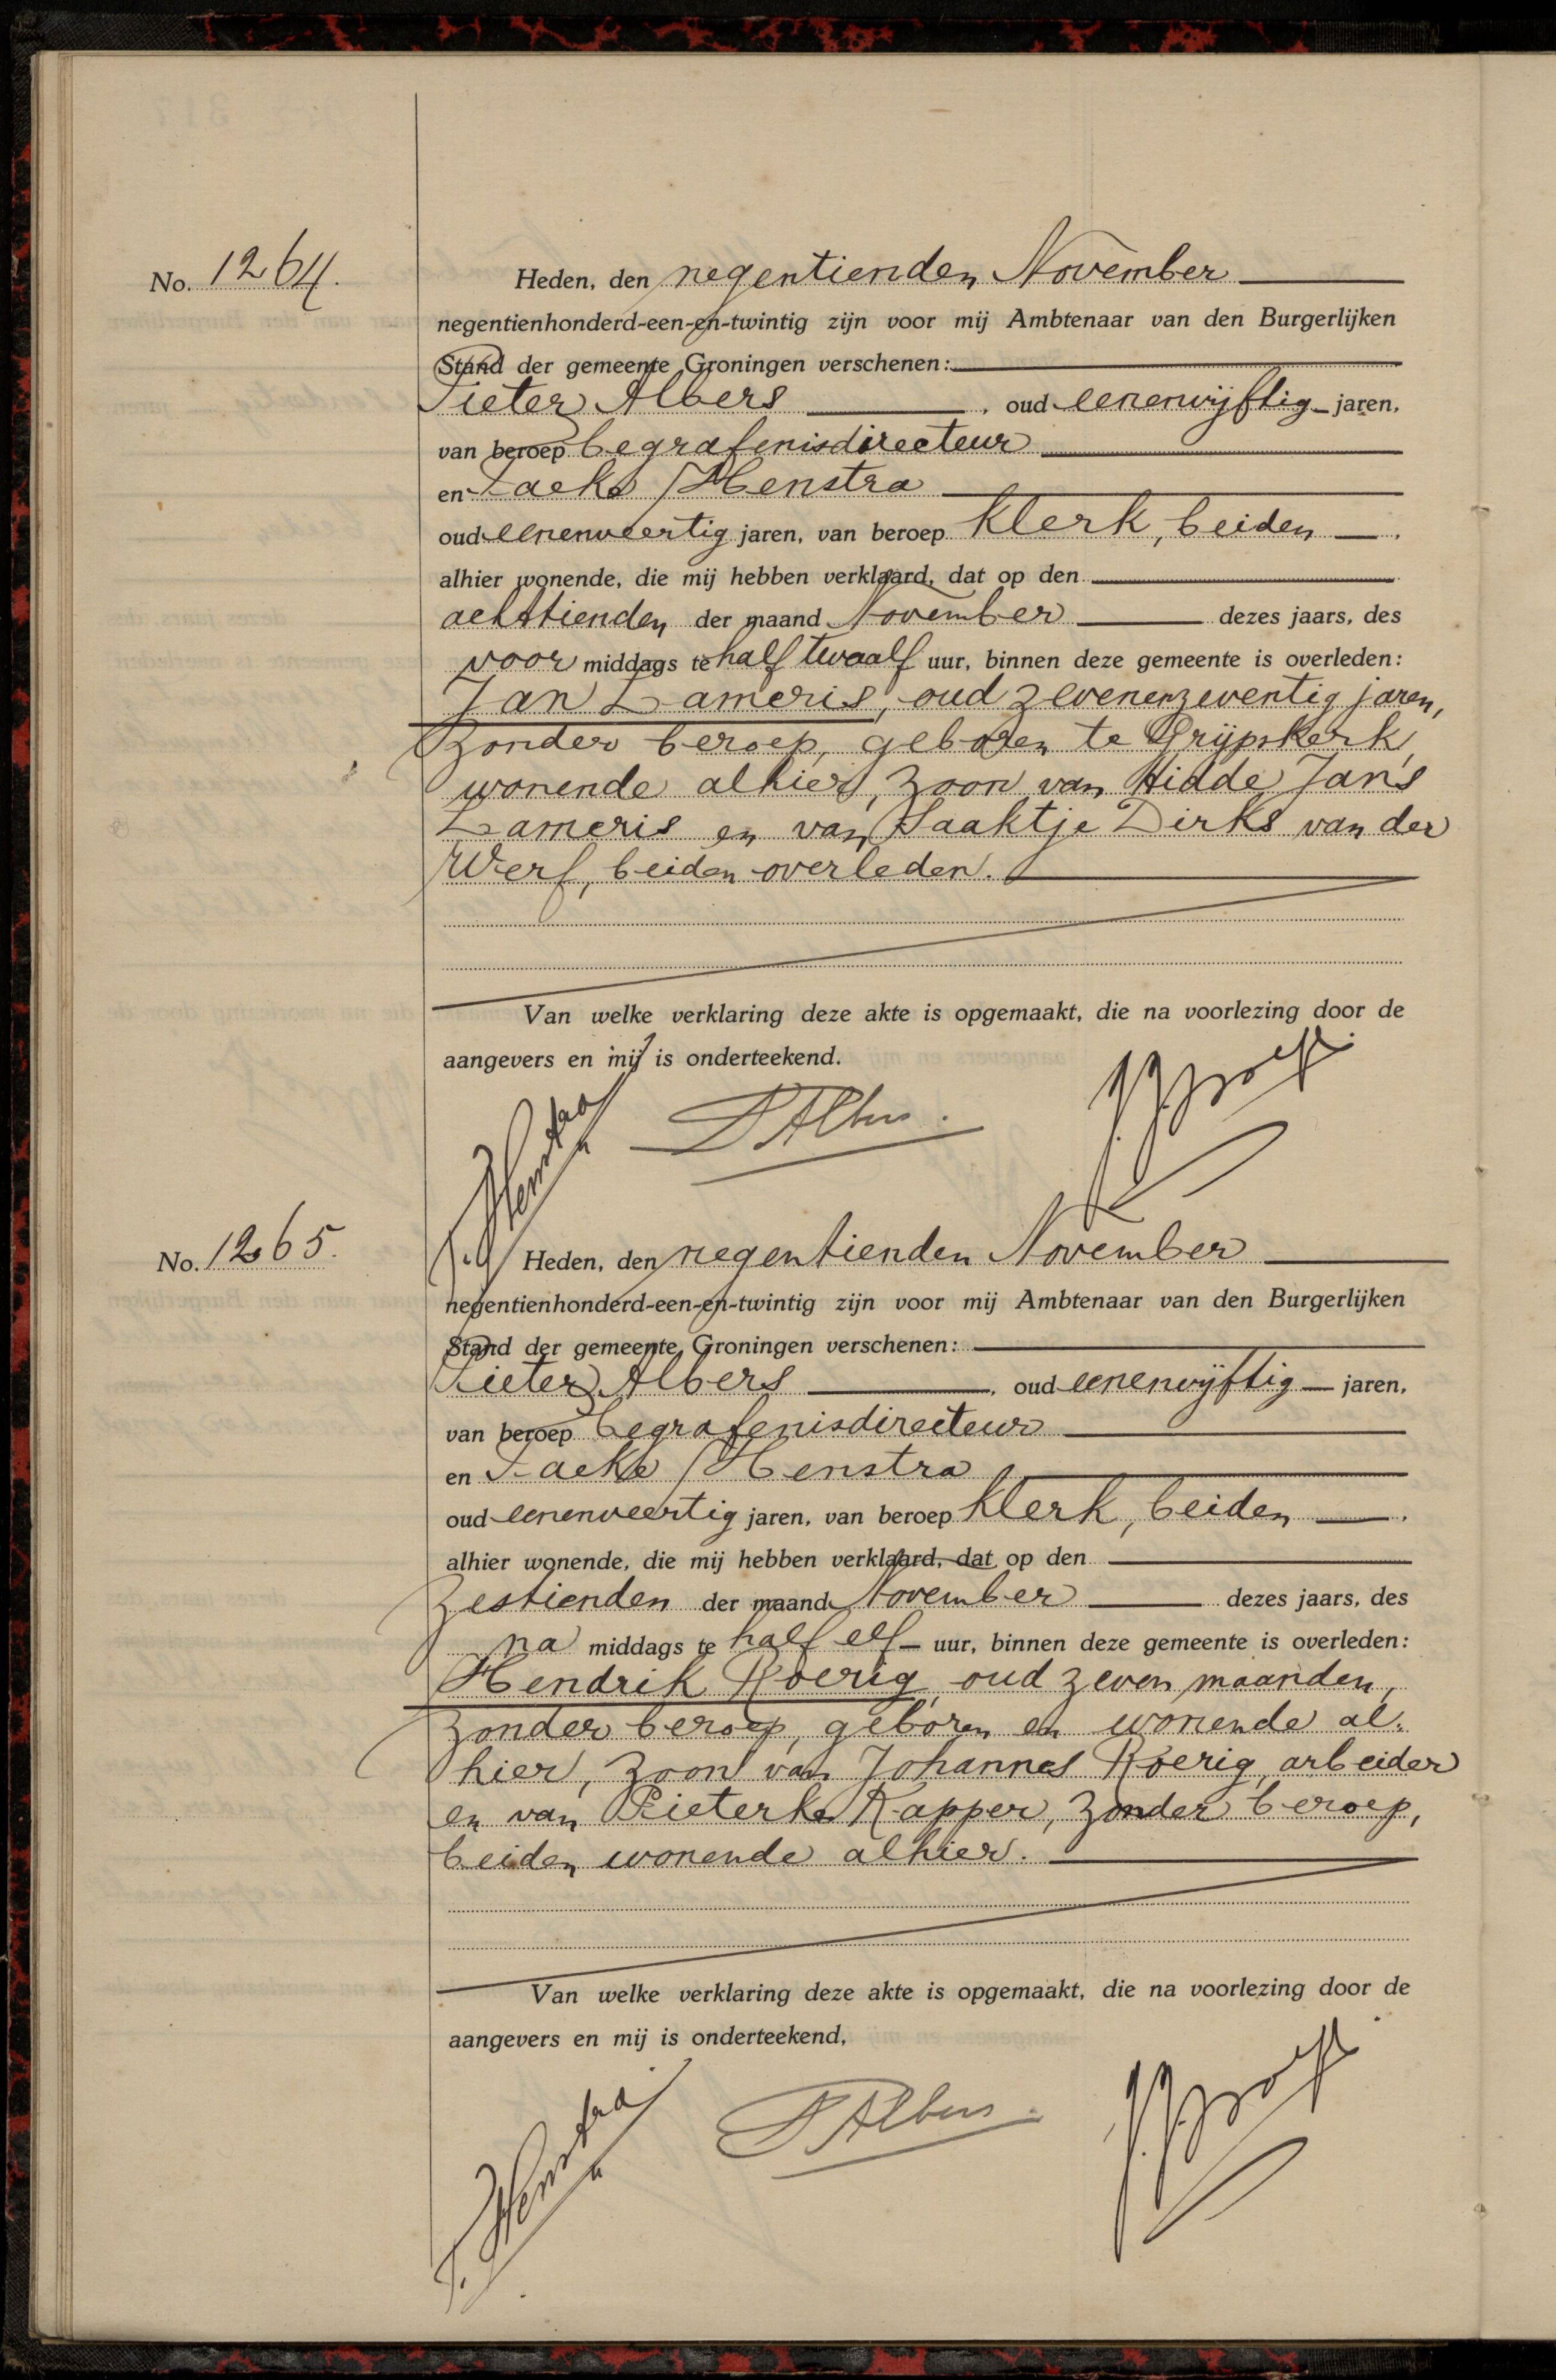 No. 1264.
Heden, den negentienden November
negentienhonderd-een-en-twintig zijn voor mij Ambtenaar van den Burgerlijken
Stand der gemeente Groningen verschenen:
Pieter Albers, oud eenenvijftig jaren,
van beroep begrafenisdirecteur
en Taeke Henstra
oud eenenveertig jaren, van beroep klerk, beiden.
alhier wonende, die mij hebben verklaard, dat op den
achttienden der maand November dezes jaars, des
voor middags te half twaalf uur, binnen deze gemeente is overleden:
Jan Lameris, oud zevenenzeventig jaren,
zonder beroep, geboren te Grijpskerk,
wonende alhier, zoon van Hidde Jans
Lameris en van Saaktje Dirks van der
Werf, beiden overleden.
Van welke verklaring deze akte is opgemaakt, die na voorlezing door de
aangevers en mij is onderteekend.
T. Henstra PAlbers.
No. 1265.
Heden, den negentienden November
negentienhonderd-een-en-twintig zijn voor mij Ambtenaar van den Burgerlijken
Stand der gemeente Groningen verschenen:
Pieter Albers, oud eenenvijftig jaren,
van beroep begrafenisdirecteur
en Taeke Henstra
oud eenenveertig jaren, van beroep klerk, beiden.
alhier wonende, die mij hebben verklaard, dat op den
zestienden der maand November dezes jaars, des
na middags te half elf uur, binnen deze gemeente is overleden:
Hendrik Roerig, oud zeven maanden,
zonder beroep, geboren en wonende al-
hier, zoon van Johannes Roerig, arbeider
en van Pieterke Kapper, zonder beroep,
beiden wonende alhier.
Van welke verklaring deze akte is opgemaakt, die na voorlezing door de
aangevers en mij is onderteekend,
T. Henstra PAlbers.